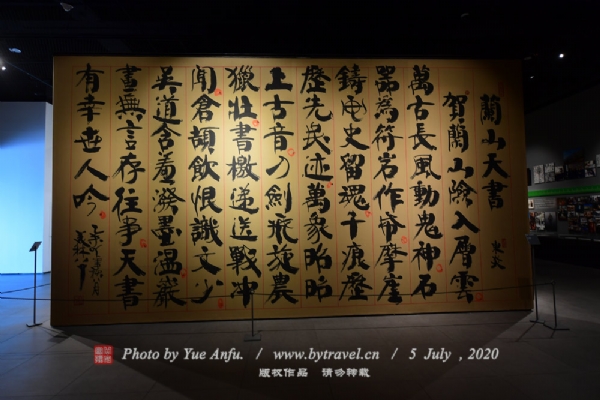 蘭山天書
賀蘭山險入層雲
萬古長風動鬼神石
器為符岩作摩崖
鑄史留魂千痕歷
歷先民迹萬象昭昭
上古音刀劍飛旋農
獵壯書檄遞送戰冲
聞倉頡飲恨識文少
吳道含羞潑墨溫巖
畫無言存往事天書
有幸世人吟
Photo by Yue Anfu. / www.bytravel.cn / 5 July , 2020
版权作品 请勿转载